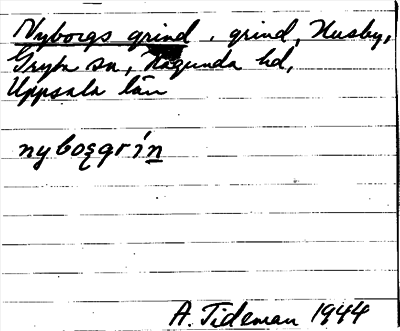 Nyborgs grind, grind, Husby,
Gryta sn, Hagunda hd,
Uppsala län
nyborggrín
A. Tideman 1944